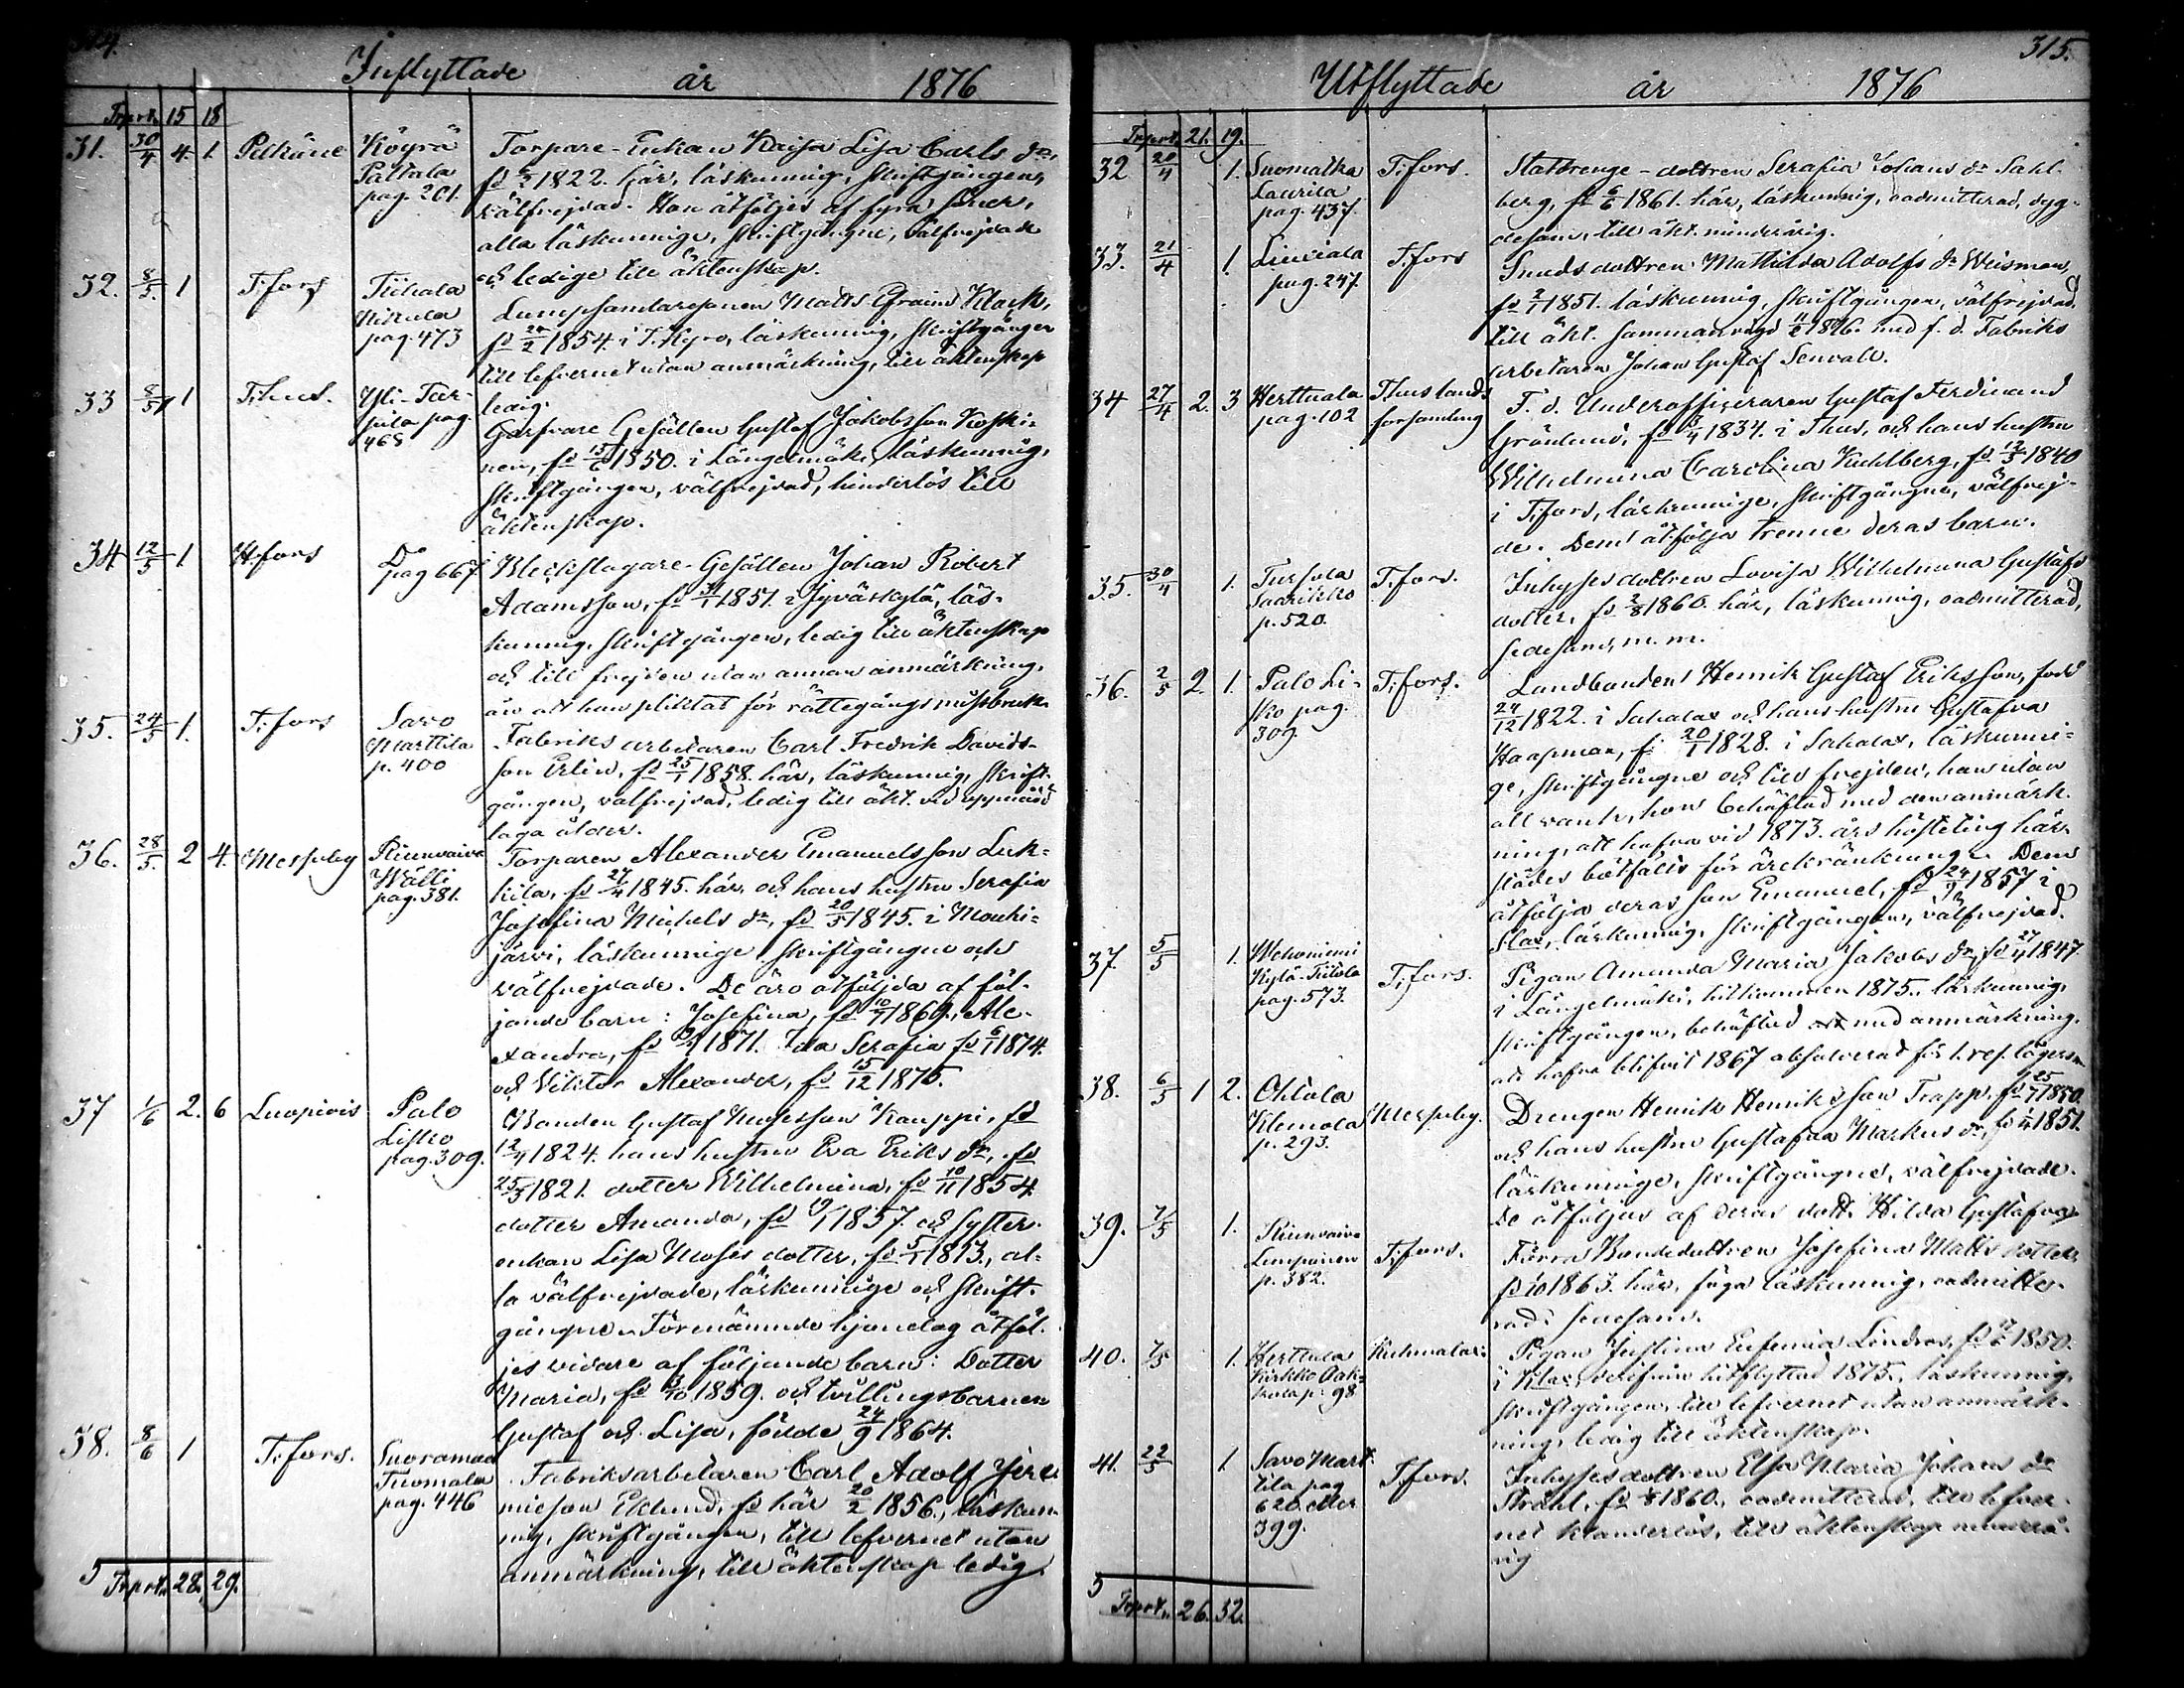 Inflyttade år 1876
Trprt. 15 18
31. 30/4 4. 1. Pelkäne Köyrä Pättala pag. 201.
Torpare-Enkan Kaisa Lisa Carls dr,
1822. här, läskunnig, skriftgången,
välfrejdad. Hon åtföljes af fyra söner,
alla läskunnige, skriftgångne, välfrejdade
och ledige till äktenskap.
32. 8/5. 1 T:fors pag. 473
Lumpsamlaresonen Matts Efraim Klack,
1854. i T. Kyro, läskunnig, skriftgången
till lefvernet utan anmärkning, till äktenskap
ledig.
33 8/5 1 T:hus. Yli- pag. 468
Garfvare Gesällen Gustaf Jakobsson Koski-
nen, fd 15/6 1850. i Längelmäki, läskunnig,
skriftgången, välfrejdad, hinderlös till
äktenskap.
34 12/5 1 H:fors Do pag 667.
Bleckslagare-Gesällen Johan Robert
Adamsson, 1851. i Jyväskylä, läs-
kunnig, skriftgången, ledig till äktenskap
och till frejden utan annan anmärkning,
än att han pliktat för rättegångs missbruk.
35. 24/5 1. T:fors Savo Marttila p. 400
Fabriks arbetaren Carl Fredrik Davids-
son Erlin, fd 25/1 1858. här, läskunnig, skrift-
gången, välfrejdad, ledig till äkt. vid uppnådd
laga ålder.
36. 28/5. 2 4. Messuby Riunvaiva Wälli pag. 381.
Torparen Alexander Emanuelsson Luk-
kila, fd 27/4 1845. här och hans hustru Serafia
Josefina Mickels dr, 1845. i Mouhi-
järvi, läskunnige, skriftgångne och
välfrejdade. De äro åtföljda af föl-
jande barn: Josefina, 1869., Ale-
xandra, 1871. Ida Serafia fd 6/1 1874.
och Viktor Alexander, fd 15/12 1875.
37 1/6 2. 6 Luopiois Palo Lisko pag. 309.
Bonden Gustaf Mosesson Kauppi, fd
12/4 1824. hans hustru Eva Eriks dr, fd
25/3 1821. dotter Wilhelmina, fd 10/11 1854.
dotter Amanda, 1857. och syster
enkan Lisa Moses dotter, fd 5/1 1813., al-
la välfrejdade, läskunnige och skrift-
gångne. Förenämnde hjonelag åtföl-
jes vidare af följande barn: Dotter
Maria, fd 3/10 1859. och tvillingsbarnen
Gustaf och Lisa, födde 24/9 1864.
38. 8/6 1 T:fors. Suoramaa Tuomala pag. 446
Fabriksarbetaren Carl Adolf Jere-
miesson Eklund, fd här 20/2 1856., läskun-
nig, skriftgången, till lefvernet utan
anmärkning, till äktenskap ledig.
5 Trprt. 28. 29.
315.
Utflyttade år 1876
Trprt. 21. 19.
32 20/4 1. Laurila pag. 437. T:fors.
Statdrenge-dottren Serafia Johans dr Sahl-
berg, 1861. här, läskunnig, oadmitterad, dyg-
desam, till äkt. minderårig.
33. 21/4 1. Liuciala pag. 247. T:fors
dottren Mathilda Adolfs dr Weisman,
1851. läskunnig, skriftgången, välfrejdad,
till äkt. sammanvigd 1876. med f. d. Fabriks
arbetaren Johan Gustaf Senvall.
34 27/4 2. 3 Herttuala pag. 102 T:hus lands församling
F. d. Underofficeraren Gustaf Ferdinand
Grönlund, 1834. i T:hus, och hans hustru
Wilhelmina Carolina Kuhlberg, fd 12/5 1840
i T:fors, läskunnige, skriftgångne, välfrej-
de. Dem åtfölja trenne deras barn.
35. 30/4 1. Tursola Saarikko p. 520. T:fors.
Inhysesdottren Lovisa Wilhelmina Gustafs
dotter, fd 2/8 1860. här, läskunnig, oadmitterad,
sedesam, m. m.
36. 2/5 2. 1. Palo Li- sko pag. 309. T:fors.
Landbonden Henrik Gustaf Eriksson, född
24/12 1822. i Sahalax och hans hustru Gustafva
Haapman, 20/1 1828. i Sahalax, läskunni-
ge, skriftgångne och till frejden, han utan
hon behäftad med den anmärk-
ning, att hafva vid 1873. års hösteting här-
städes bötfälts för ärekränkning. Dem
åtfölja deras son Emanuel, fd 24/9 1857 i
Slax, läskunnig, skriftgången, välfrejdad.
37. 5/5 1. Wehoniemi Kylä-Tiitola pag. 573. T:fors.
Pigan Amanda Maria Jakobs dr, 1847.
i Längelmäki, hitkommen 1875., läskunnig,
skriftgången, behäftad med anmärkning,
att hafva blifvit 1867 absolverad för 1. res. lägersm.
38. 6/5 1 2. Ohtola Klemola p. 293. Messuby.
Drengen Henrik Henriksson Trapp, 1850.
och hans hustru Gustafva Markus dr, 1851.
läskunnige, skriftgångne, välfrejdade.
De åtföljas af deras dott. Hilda Gustafva
39. 7/5 1. Riunvaiva Lumpainen p. 382. T:fors.
Förra Bondedottren Josefina Matts dotter,
1863. här, föga läskunnig, oadmitte-
rad, sedesam.
40. 7/5 1. Herttuala Kirkko Oak- p. 98. Kuhmalax
Pigan Justina Eufemia Lindros, 1850.
i hitflyttad 1875., läskunnig,
skriftgången, till lefvernet utan anmärk-
ning, ledig till äktenskap.
41. 22/5 1. Savo Mart- tila pag. 620 eller 399. T:fors.
Inhysesdottren Elsa Maria Johans dr
Stråhl, 1860., oadmitterad, till lefver-
net klanderlös, till äktenskap minderå-
rig
5 Trprt. 26. 32.